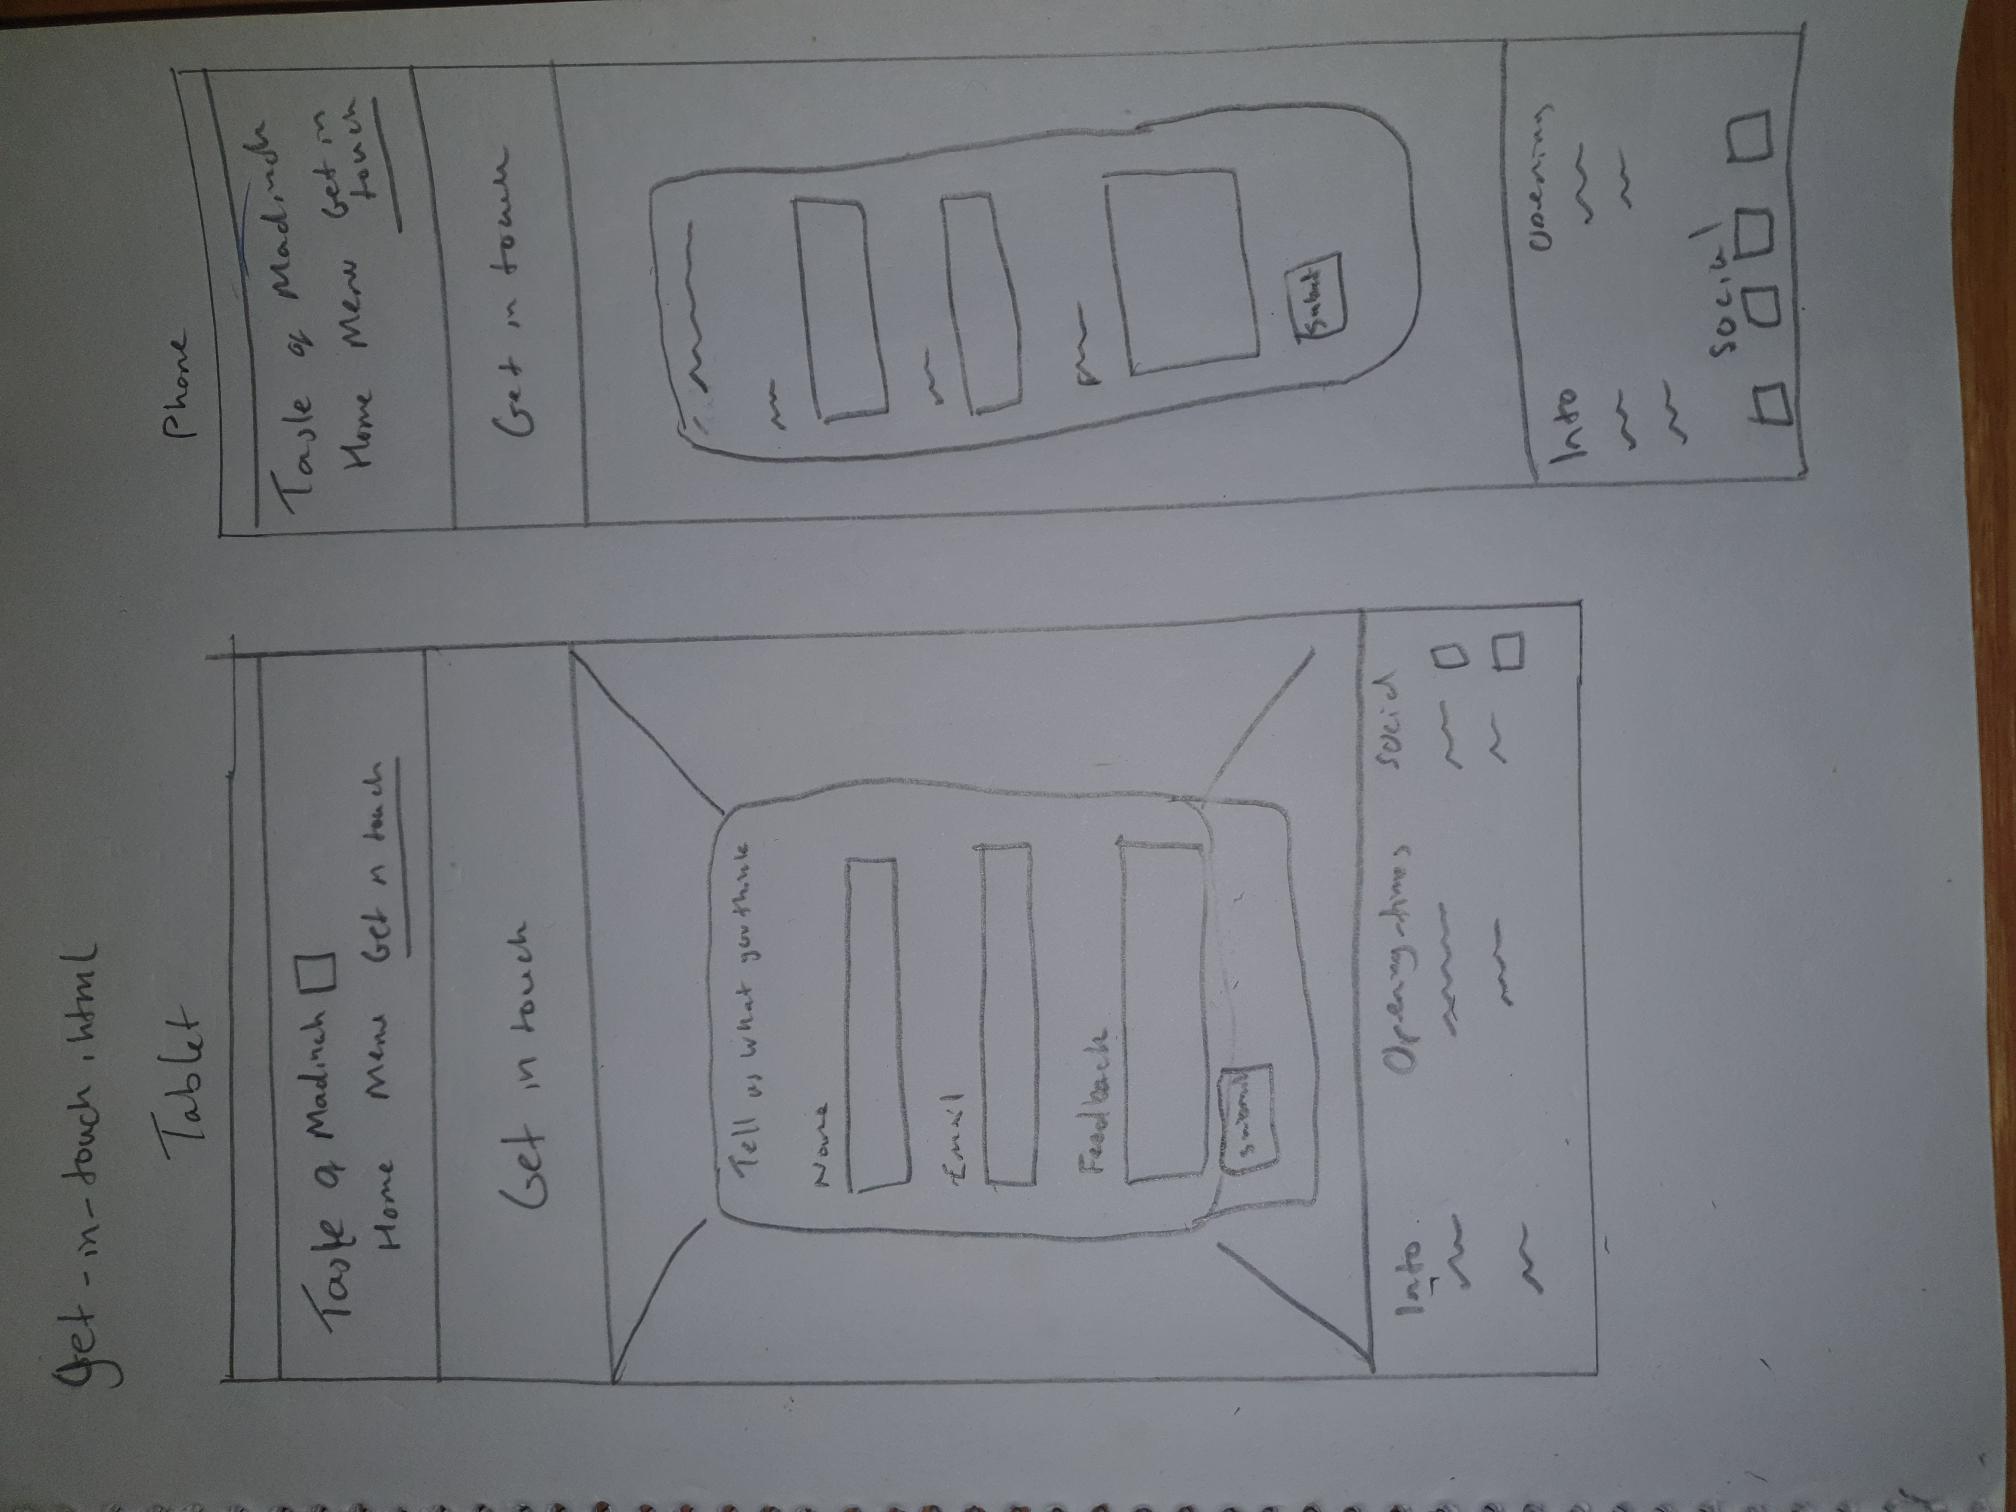 get-in-touch.html
Tablet
Taste of Madinah
Home Menu Get n touch
Get in touch
Tell us what you think
Name
Email
Feedback
Submit
Info Opening-times Social
Phone
Taste of Madinah
Home Menu Get in
touch
Get in touch
Submit
Info Opening
Social